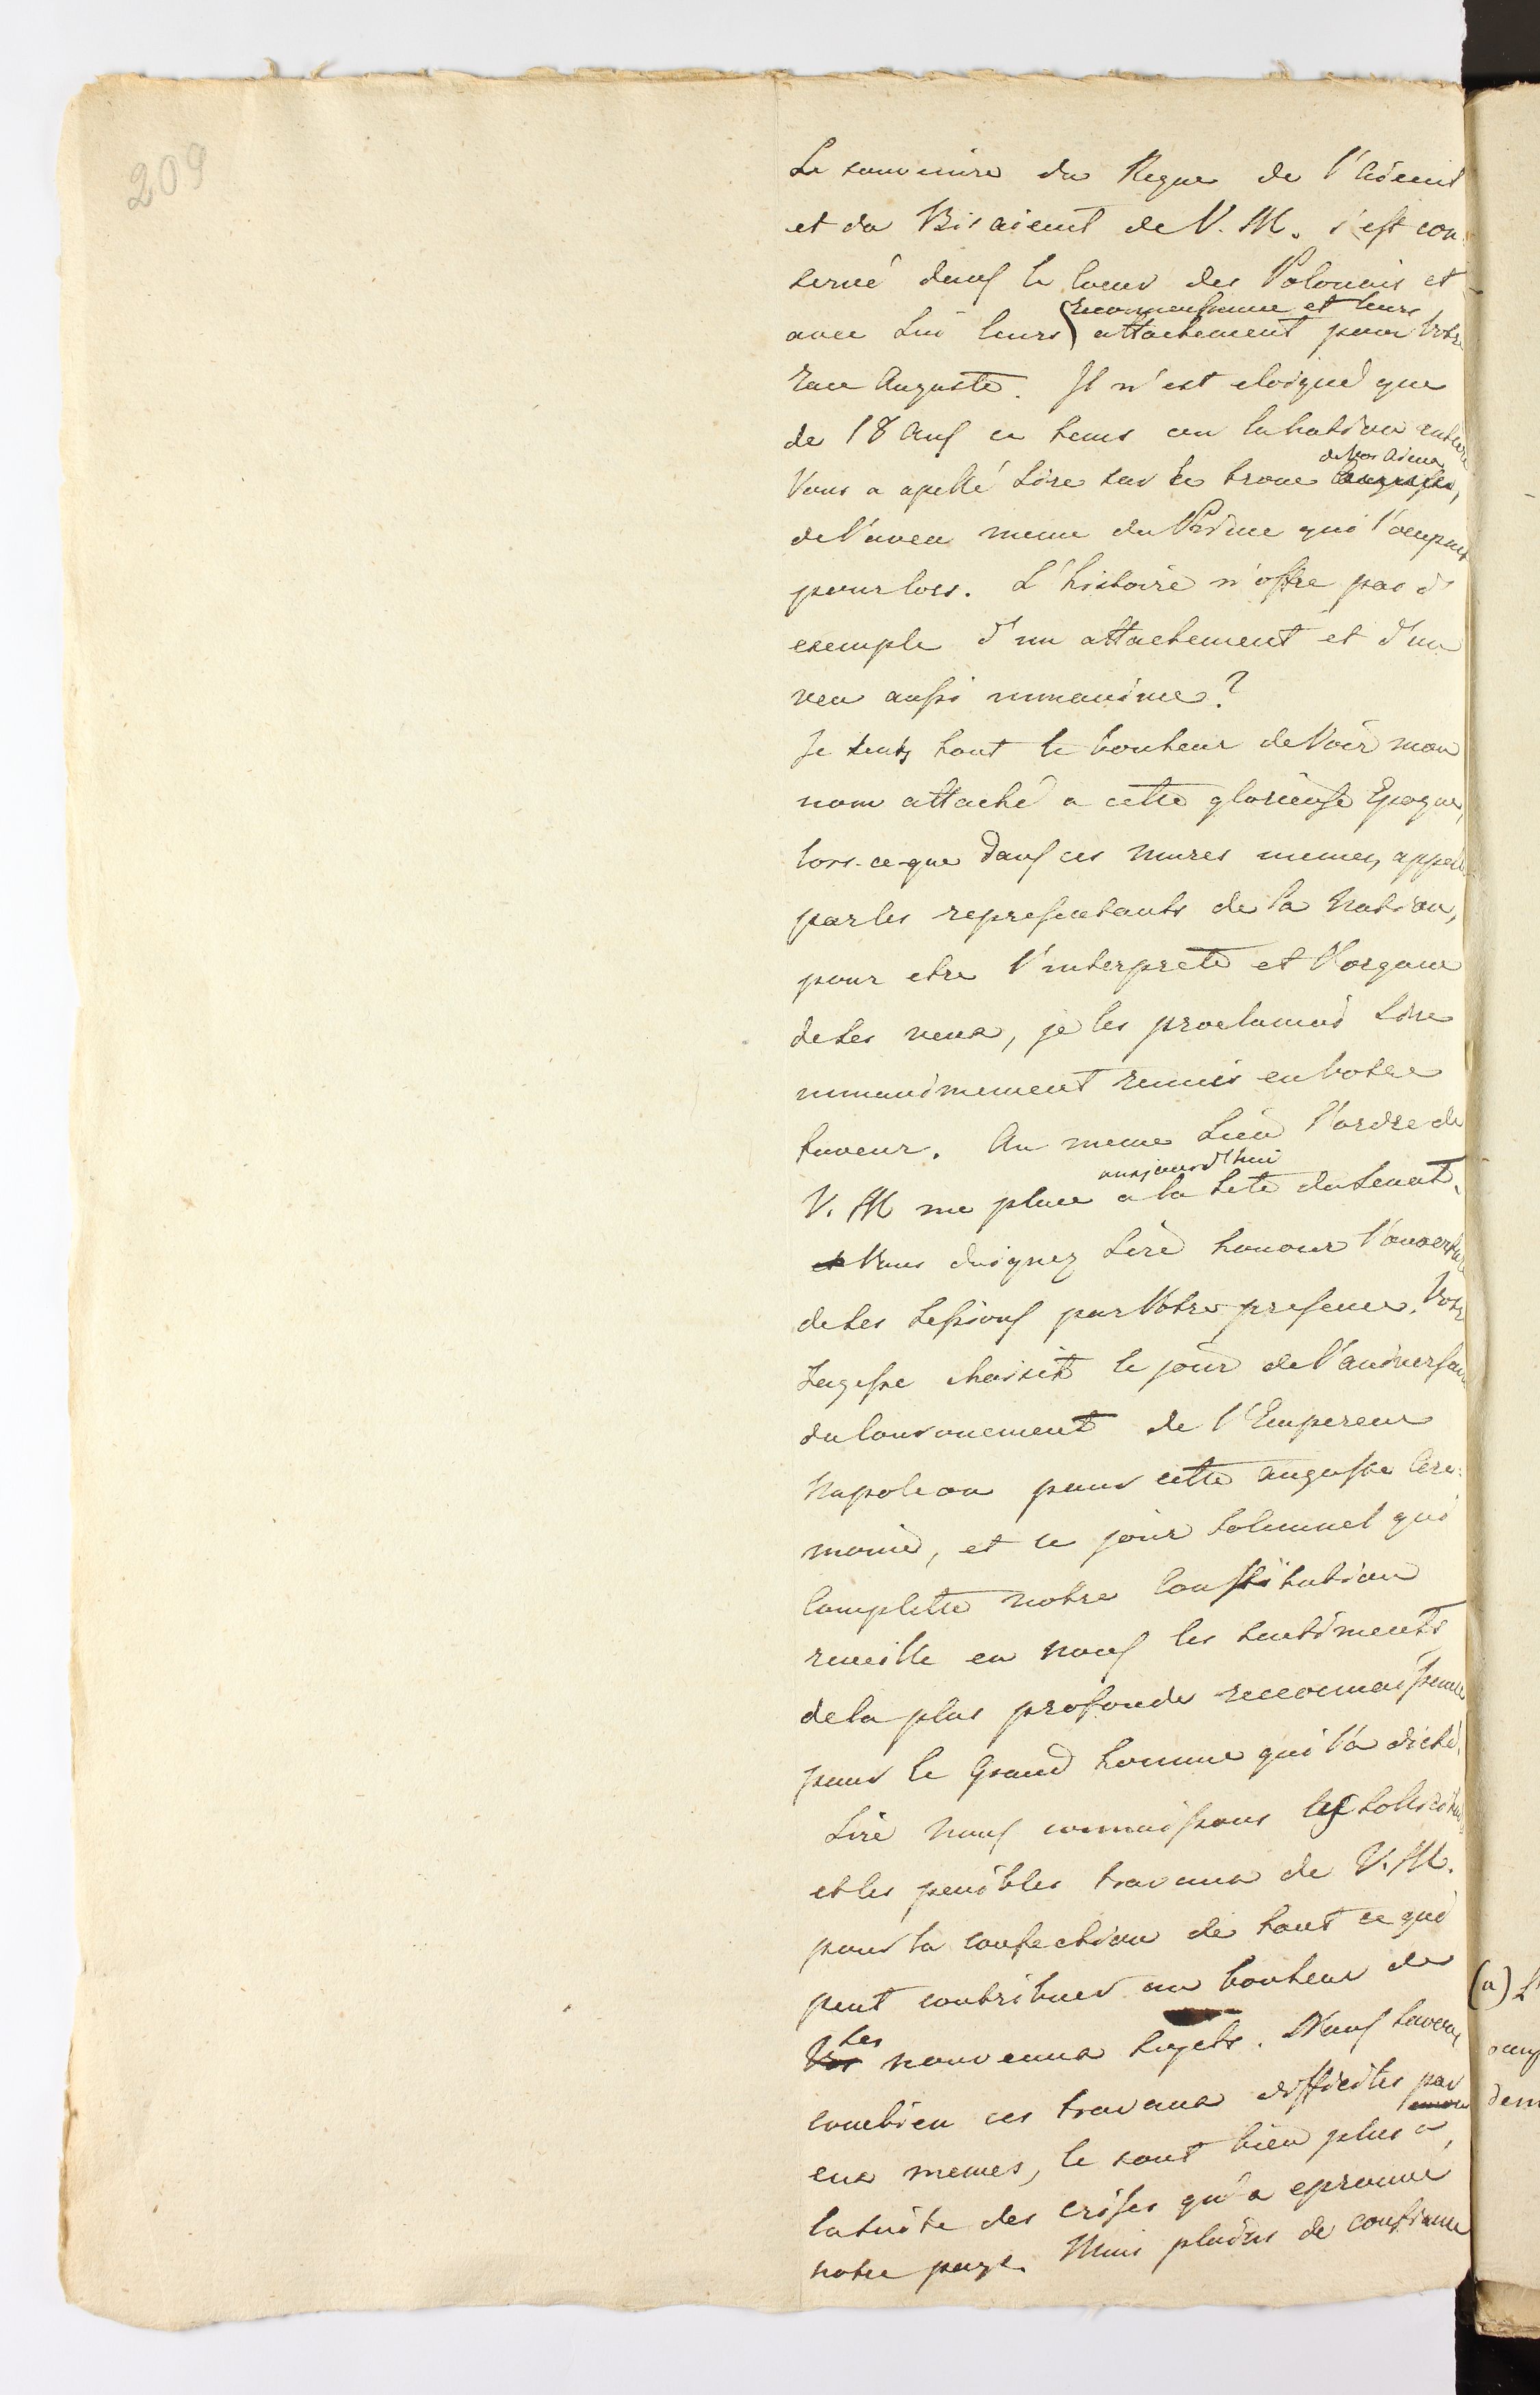 209
Le souvenire du Regne de l'Aieeul
et du Bisaieeul de V. M. s'est con:
servé dans le coeur des Polonais et
reconnoissance et leurs
avec Lui leurs attachement pour Votre
race Auguste. Il n'est eloigné que
de 18 ans ce tems ou la Nation entiere
de Vos Aieux
Vous a apellé Sire sur le trone Auguste,
de l'aveu meme du Prince qui l'occupait
pour lors. L'histoire n'offre pas d'
exemple d'un attachement et d'un
veu aussi unnanime?
Je sents tout le bonheur de Voir mon
nom attaché a cette glorieuse Epoque,
lors-ce-que dans ces mures memes, appellé
par les representants de la Nation,
pour etre l'interprete et l'organe
de ses veux, je les proclamai Sire
unnanimement reunis en Votre
faveur. Au meme Lieu l'ordre de
aujourd'hui
V. M me place a la tete du Senat.
et Vous daignez Sire honorer l'ouverture
de ses Sessions par Votre presence. Votre
Sagesse choisit le jour de l'aniversaire
du Couronement de l'Empereur
Napoleon pour cette auguste Cere:
monie, et ce jour solemnel qui
complette notre Constitution
reveille en nous les sentiments
de la plus profonde reconnaissance
pour le Grand homme qui l'a dicté.
Sire nous connaissons les sollicitudes
et les penibles travaux de V. M.
pour la confection de tout ce qui
peut contribuer au bonheur de
Ses
Vos nouveaux sujets. Nous savons
combien ces travaux difficiles par
eux memes, le sont bien plus a
la suite des crises qu'a eprouvé
notre pays. Mais pleins de confiance
(a) L'
dem